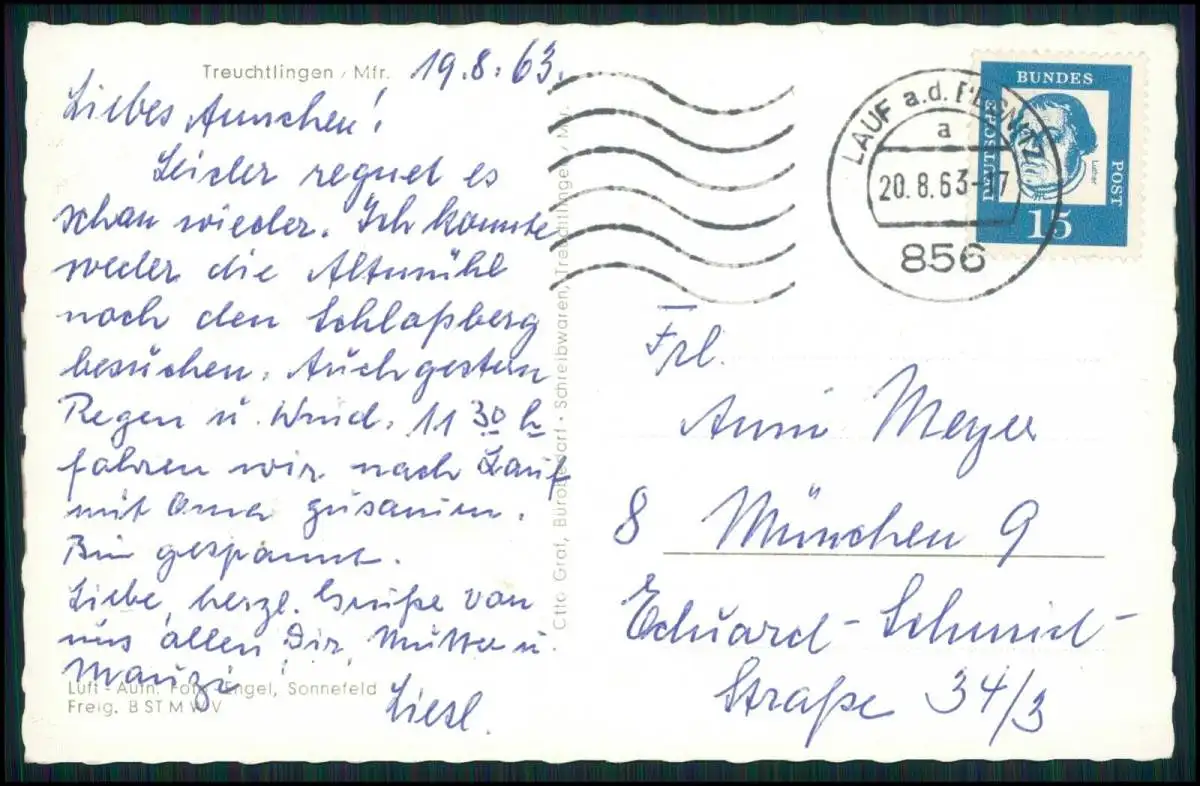 Treuchtlingen / Mfr.
19.8.63.
Liebes Annchen!
Leider regnet es
schon wieder. Ich konnte
weder die Altmühl
noch den Schloßberg
besuchen. Auch gestern
Regen u. Wind. 11 30 h
fahren wir nach Lauf
mit Oma zusamm.
Bin gespannt.
Liebe, herzl. Grüße von
uns allen Dir, Mutter u.
Mauzi!
Liesl.
Luft-Aufn. Foto-Engel, Sonnefeld
Freig. B ST M W V
Otto Graf, Bürobedarf - Schreibwaren, Treuchtlingen / Mfr.
LAUF a.d. PEGNITZ
a
20.8.63-17
856
DEUTSCHE
BUNDES
POST
Luther
15
Frl.
Anni Meyer
8 München 9
Eduard-Schmid-
Straße 34/3